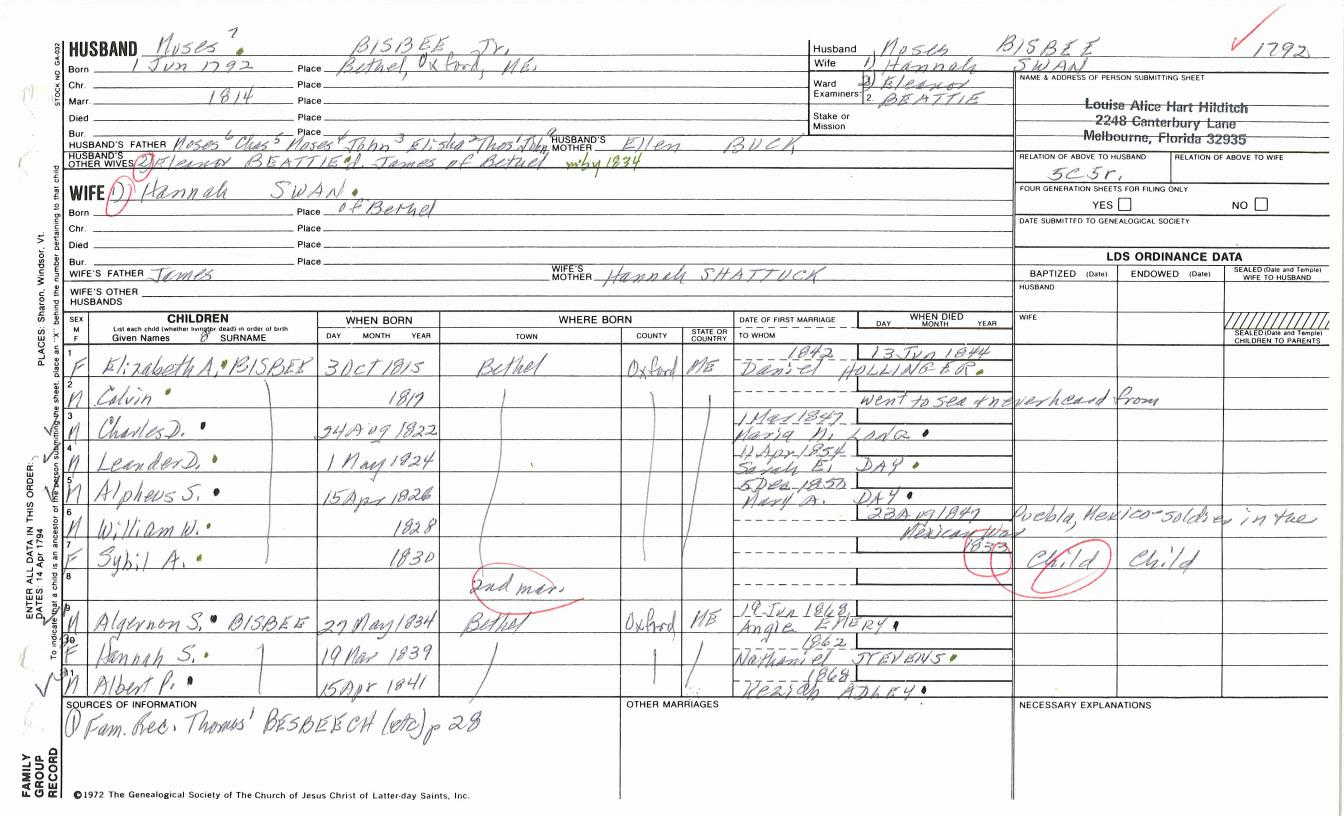 HUSBAND Moses 7 BISBEE Jr.
Born 1 Jun 1792 Place Bethel, Oxford, ME.
Chr. Place
Marr. 1814 Place
Died Place
Bur. Place
HUSBAND'S FATHER Moses 6 Chas 5 Moses 4 John 3 Elisha 2 Thos 1 John HUSBAND'S MOTHER Ellen BUCK
HUSBAND'S OTHER WIVES (2) Eleanor BEATTIE d. James of Bethel m by 1834
WIFE 1) Hannah SWAN
Born Place of Bethel
Chr. Place
Died Place
Bur. Place
WIFE'S FATHER James WIFE'S MOTHER Hannah SHATTUCK
WIFE'S OTHER HUSBANDS
Husband Moses BISBEE 1792
Wife 1) Hannah SWAN
Ward Examiners: 1. 2) Eleanor
2. BEATTIE
Stake or Mission
NAME & ADDRESS OF PERSON SUBMITTING SHEET
Louise Alice Hart Hilditch
2248 Canterbury Lane
Melbourne, Florida 32935
RELATION OF ABOVE TO HUSBAND RELATION OF ABOVE TO WIFE
5C5r.
FOUR GENERATION SHEETS FOR FILING ONLY
YES NO
DATE SUBMITTED TO GENEALOGICAL SOCIETY
LDS ORDINANCE DATA
BAPTIZED (Date) ENDOWED (Date) SEALED (Date and Temple) WIFE TO HUSBAND
HUSBAND
WIFE
SEALED (Date and Temple) CHILDREN TO PARENTS
SEX M F
CHILDREN
List each child (whether living or dead) in order of birth
Given Names 8 SURNAME
WHEN BORN
DAY MONTH YEAR
WHERE BORN
TOWN COUNTY STATE OR COUNTRY
DATE OF FIRST MARRIAGE
TO WHOM
WHEN DIED
DAY MONTH YEAR
1 F Elizabeth A. BISBEE 3 Oct 1815 Bethel Oxford ME 1842 13 Jun 1844
Daniel HOLLINGER
2 M Calvin 1817 went to sea & never heard from
3 M Charles D. 24 Aug 1822 1 Mar 1847
Maria N. LONG
4 M Leander D. 1 May 1824 11 Apr 1854
Sarah E. DAY
5 M Alpheus S. 15 Apr 1826 5 Dec 1850
Mary A. DAY
6 M William W. 1828 23 Aug 1847 Puebla, Mexico-soldier in the
Mexican War
7 F Sybil A. 1830 1833 Child Child
8 2nd mar.
9 M Algernon S. BISBEE 27 May 1834 Bethel Oxford ME 19 Jun 1868
Angie EMERY
10 F Hannah S. 19 Mar 1839 1862
Nathaniel STEVENS
11 M Albert P. 15 Apr 1841 1868
Keziah ADLEY
SOURCES OF INFORMATION
(1) Fam. Rec. Thomas' BESBEECH (etc) p 28
OTHER MARRIAGES
NECESSARY EXPLANATIONS
©1972 The Genealogical Society of The Church of Jesus Christ of Latter-day Saints, Inc.
STOCK NO. GA-032
PLACES: Sharon, Windsor, Vt.
ENTER ALL DATA IN THIS ORDER:
DATES: 14 Apr 1794
To indicate that a child is an ancestor of the person submitting the sheet, place an "X" behind the number pertaining to that child
FAMILY GROUP RECORD